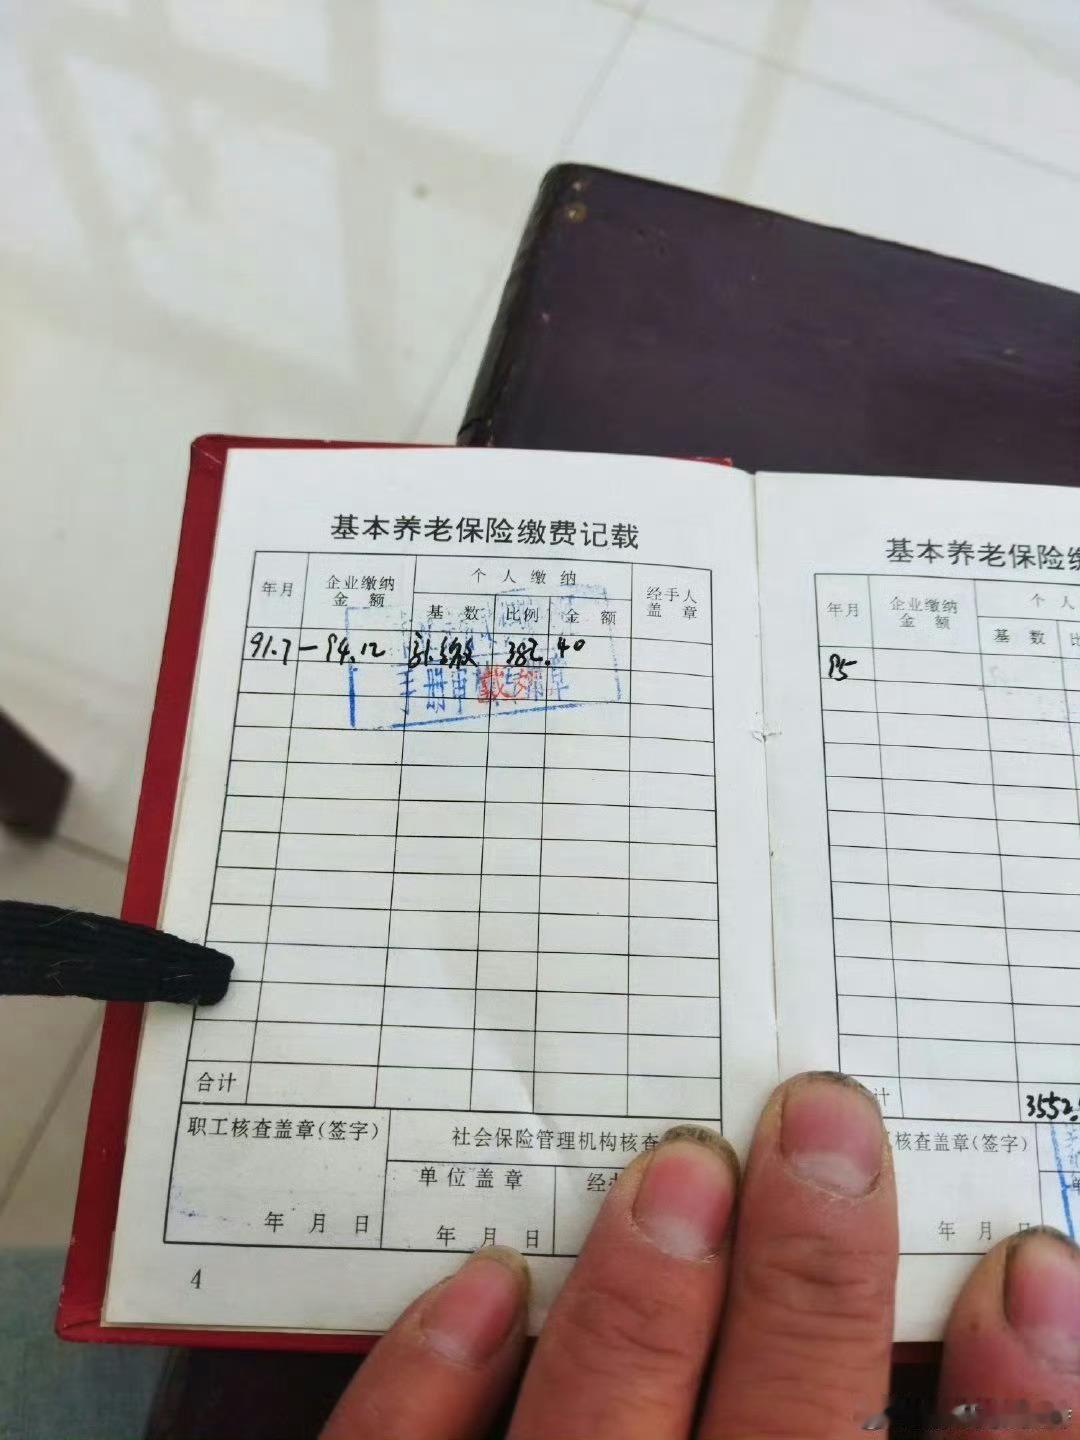 基本养老保险缴费记载
年月
企业缴纳
金额
个人缴纳
基数
比例
金额
经手人
盖章
91.7－94.12
382.40
手册审核
合计
职工核查盖章(签字)
年 月 日
社会保险管理机构核查
单位盖章
年 月 日
4
基本养老保险缴
年月
企业缴纳
金额
个人
基数
95
3552.
核查盖章(签字)
年 月 日